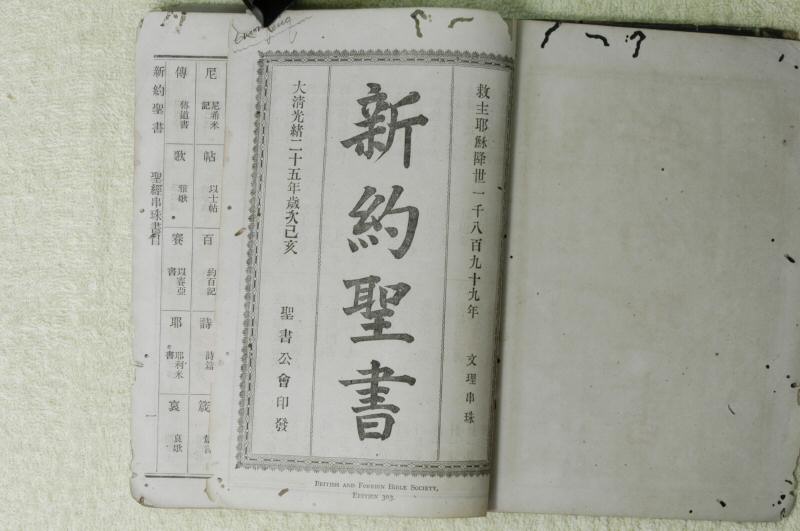 救主耶穌降世一千八百九十九年 文理串珠
新約聖書
大清光緒二十五年歲次己亥 聖書公會印發
BRITISH AND FOREIGN BIBLE SOCIETY,
EDITION 303.
尼 尼希米記
帖 以士帖
百 約百記
詩 詩篇
箴
傳 傳道書
歌 雅歌
賽 以賽亞書
耶 耶利米書
哀 哀歌
新約聖書 聖經串珠書目 一